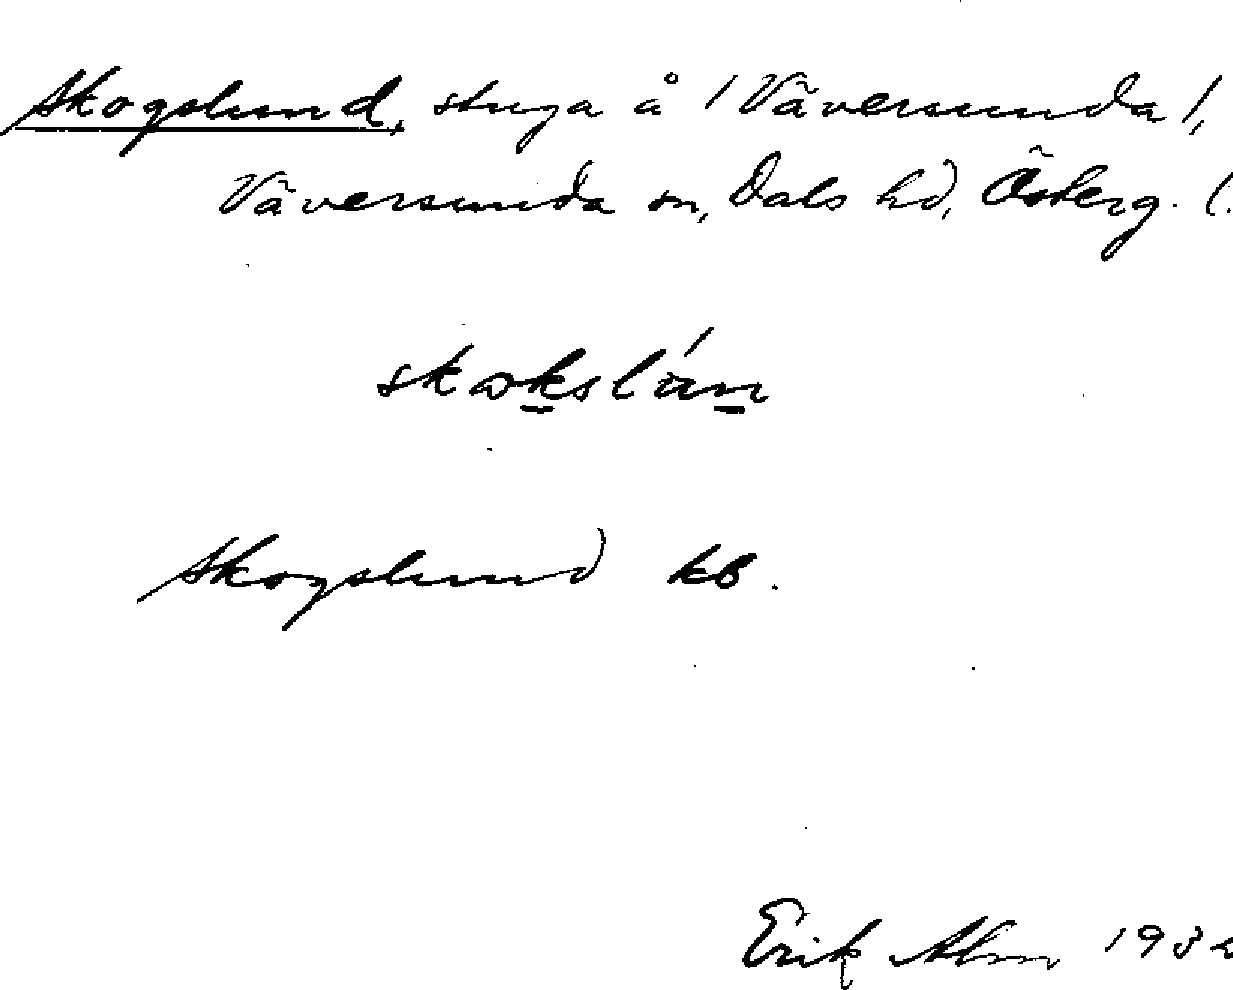 Skogslund, stuga å /Väversunda/,
Väversunda sn, Dals hd, Österg. l.
Skogslund kb.
Erik Alm 1932